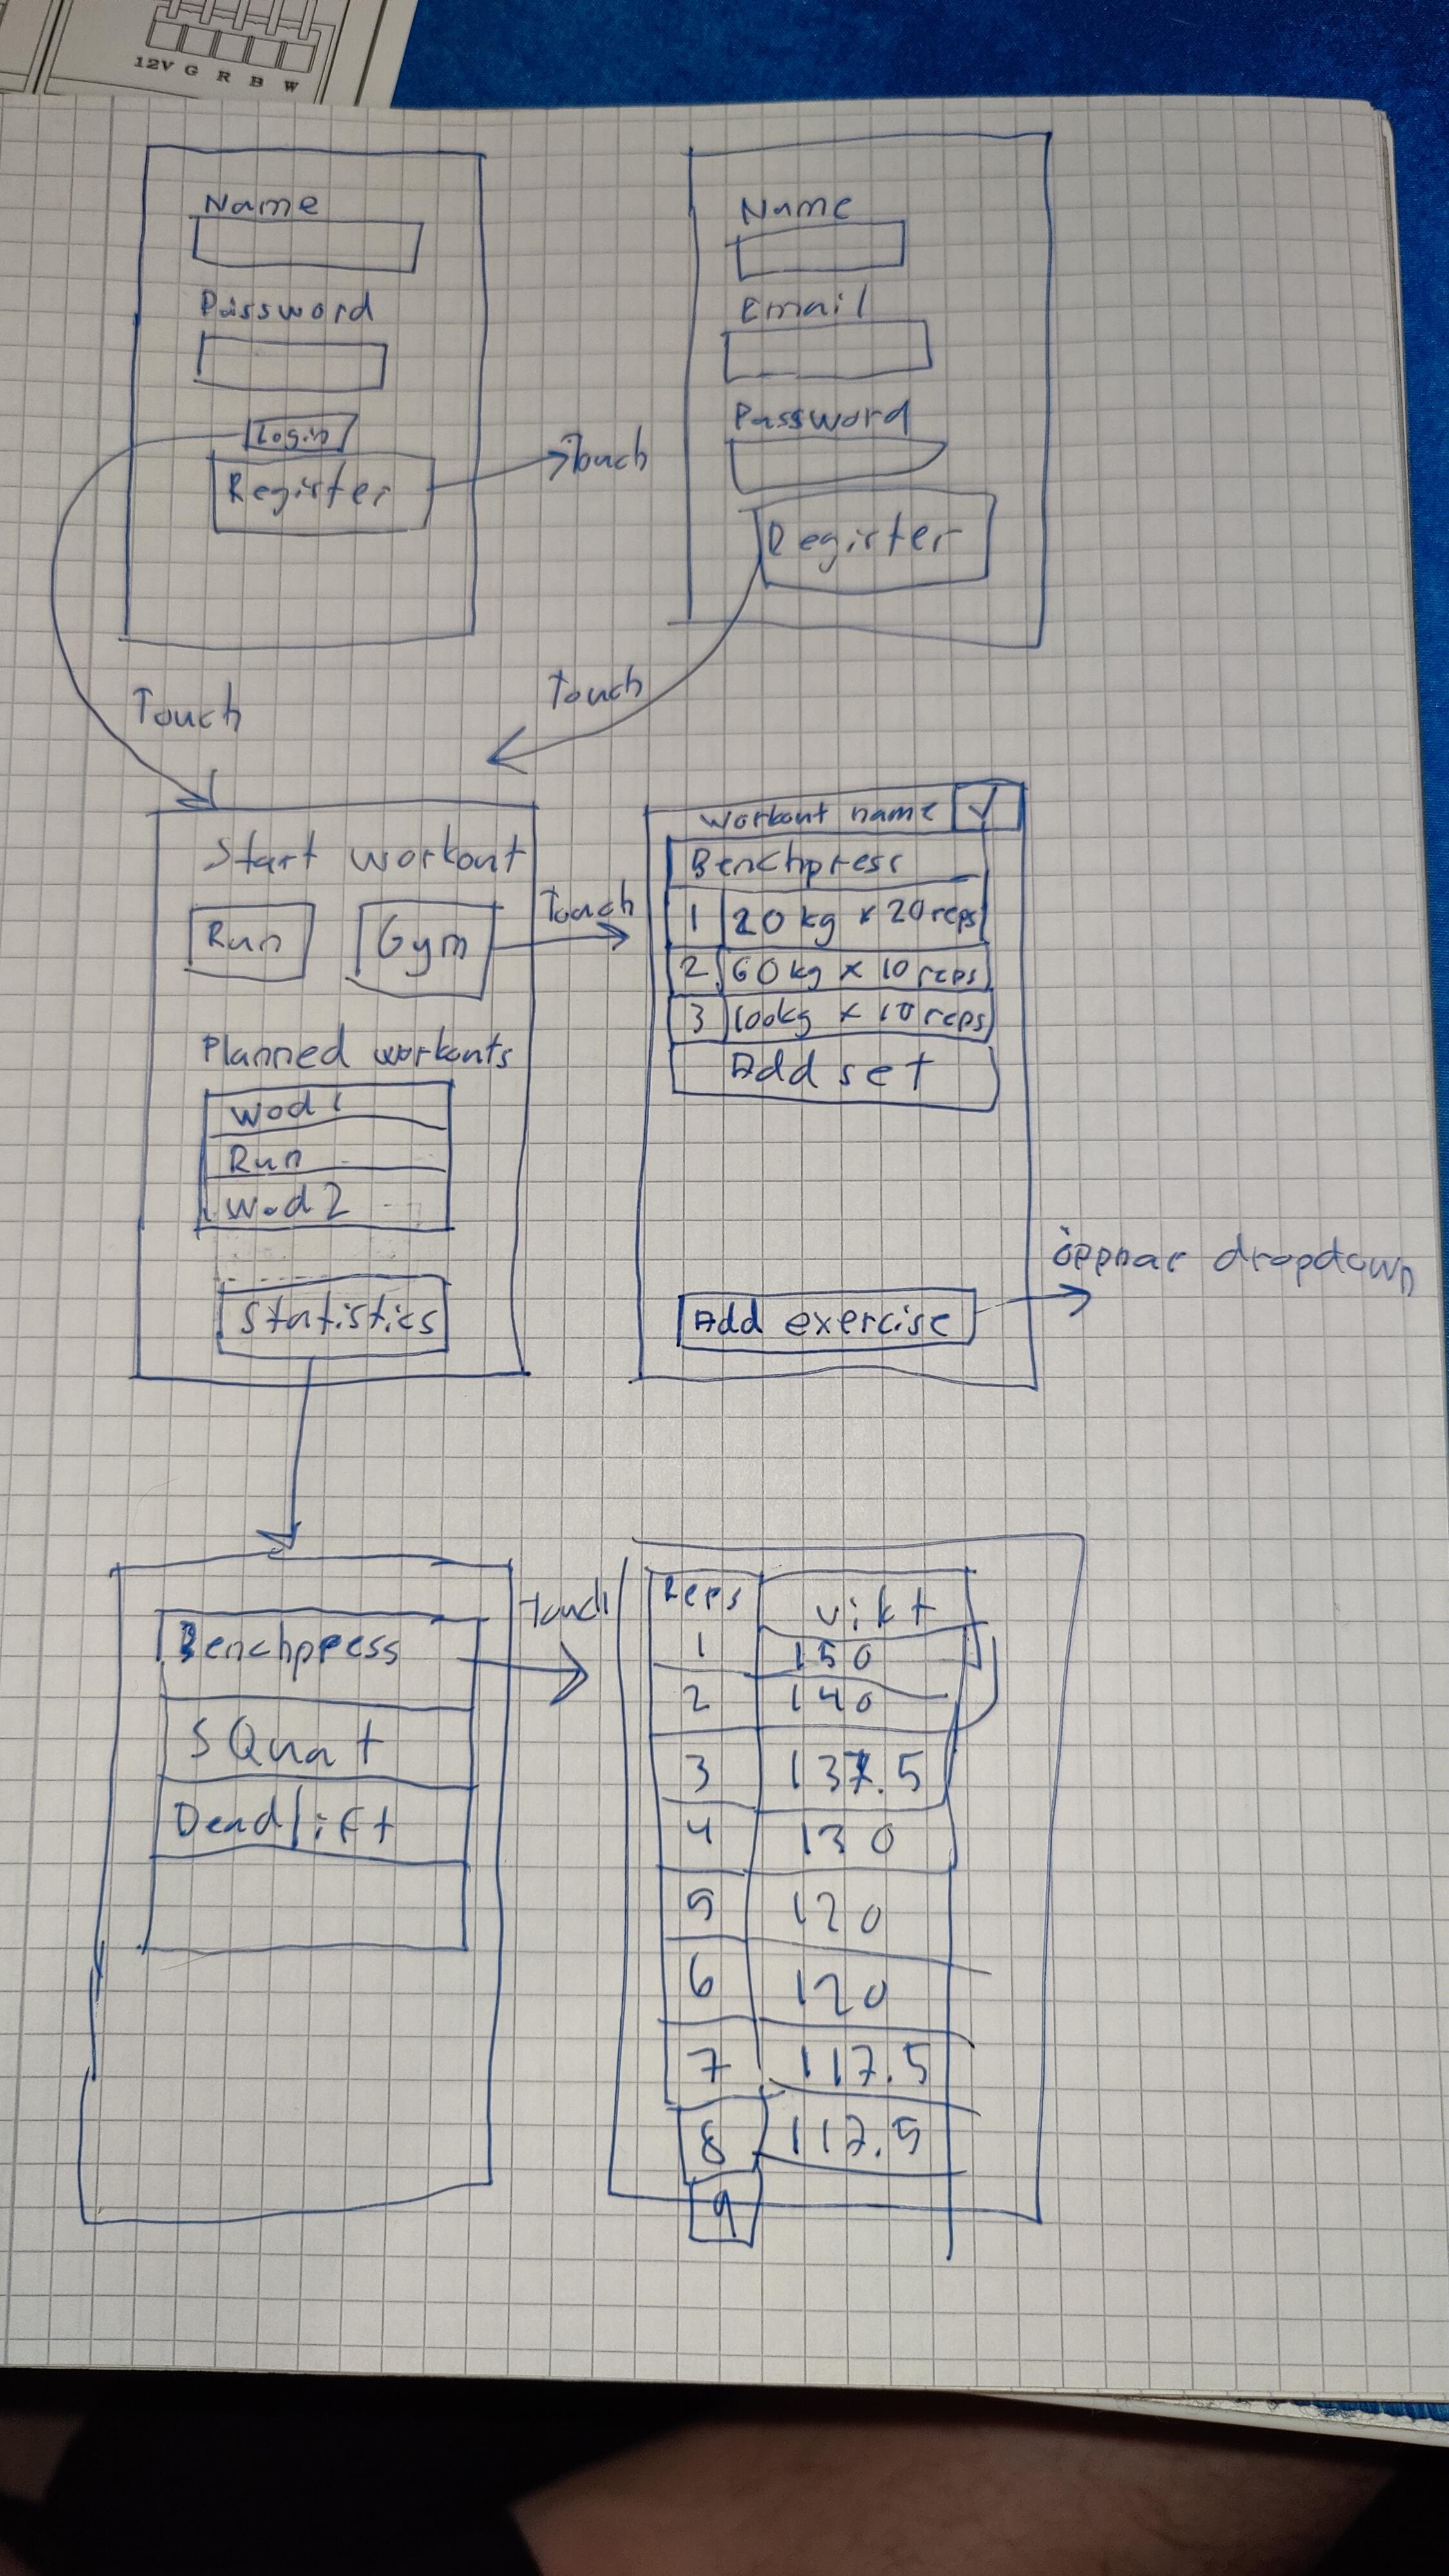 12V G R B W
Name
Password
Login
Register
Touch
Name
Email
Password
Register
Touch
Touch
Start workout
Run Gym
Touch
Planned workouts
Wod 1
Run
Wod 2
Statistics
Workout name ✓
Benchpress
1 20 kg x 20 reps
2 60 kg x 10 reps
3 100kg x 10 reps
Add set
Add exercise
öppnar dropdown
Benchpress
SQuat
Deadlift
touch
Reps vikt
1 150
2 140
3 137.5
4 130
5 120
6 120
7 117.5
8 117.5
9